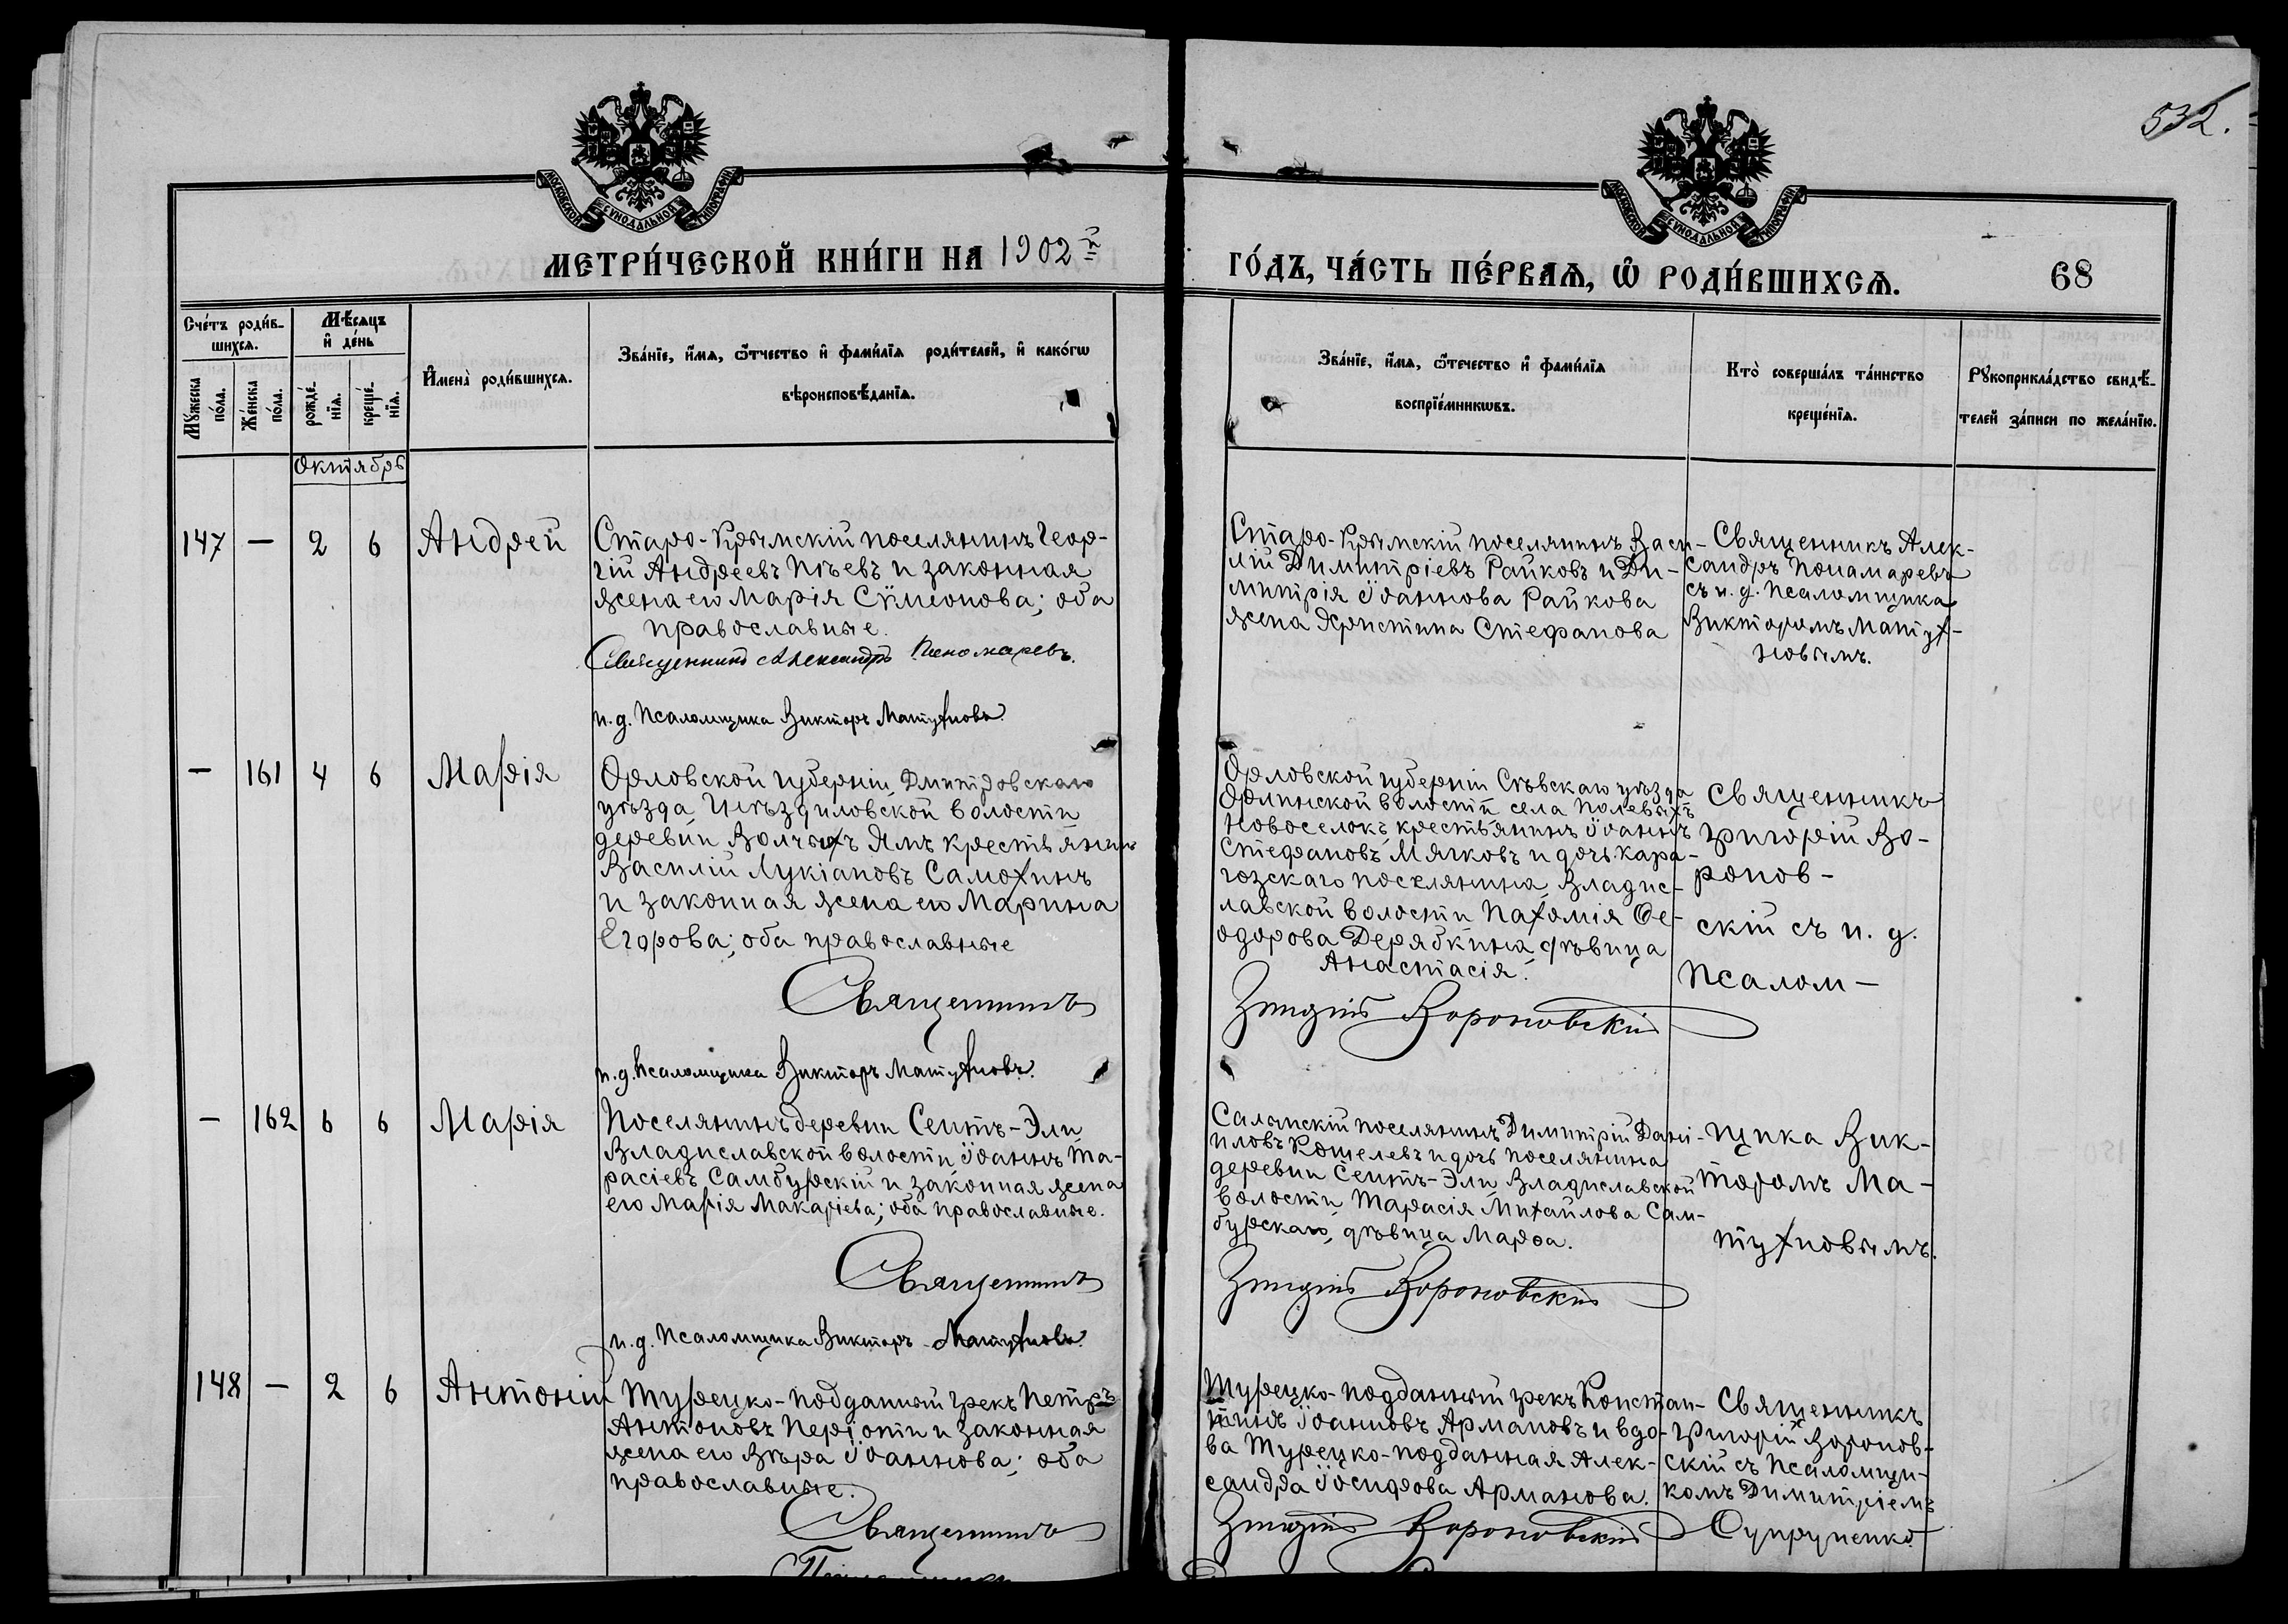 532.
МОСКОВСКОЙ СѴНОДАЛЬНОЙ ТИПОГРАФІИ
МОСКОВСКОЙ СѴНОДАЛЬНОЙ ТИПОГРАФІИ
МЕТРИ́ЧЕСКОЙ КНИ́ГИ НА 1902й
ГО́ДЪ, ЧА́СТЬ ПЕ́РВАѦ, Ѡ҆ РОДИ́ВШИХСѦ. 68
Сче́тъ роди́в-
шихсѧ.
Мѣ́сѧцъ
и҆ де́нь
Мꙋ́жеска
по́ла.
Же́нска
по́ла.
рожде́-
нїѧ.
креще́-
нїѧ.
И҆мена̀ роди́вшихсѧ.
Зва́нїе, и҆́мѧ, ѻ҆́тчество и҆ фами́лїѧ роди́телей, и҆ како́гѡ
вѣроисповѣ́данїѧ.
Зва́нїе, и҆́мѧ, ѻ҆те́чество и҆ фами́лїѧ
воспрїе́мникѡвъ.
Кто̀ соверша́лъ та́инство
креще́нїѧ.
Рꙋкоприкла́дство свидѣ́-
телей за́писи по жела́нїю.
Октябрь
147 — 2 6 Андрей
Старо-Крымскій поселянинъ Геор-
гій Андреевъ Пѣевъ и законная
жена его Марія Сѵмеонова; оба
православные.
Священникъ Александръ Пономаревъ.
и.д. Псаломщика Викторъ Матухновъ.
Старо-Крымскій поселянинъ Васи-
лій Димитріевъ Райковъ и Ди-
митрія Іоаннова Райкова
жена Христина Стефанова
Священникъ Алек-
сандръ Понамаревъ
съ и.д. псаломщика
Викторомъ Матух-
новымъ.
— 161 4 6 Марія
Орловской губерніи, Дмитровскаго
уѣзда, Гнѣздиловской волости
деревни Волчьихъ Ямъ крестьянинъ
Василій Лукіановъ Самохинъ
и законная жена его Марина
Егорова; оба православные
Священникъ
и.д. Псаломщика Викторъ Матухновъ.
Орловской губерніи Сѣвскаго уѣзда
Орлинской волости села Полевыхъ
Новоселокъ крестьянинъ Іоаннъ
Стефановъ Мягковъ и дочь Кара-
гозскаго поселянина, Владис-
лавской волости Пахомія Ѳе-
одорова Дерябкина дѣвица
Анастасія.
Григорій Вороновскій
Священникъ
Григорій Во-
ронов-
скій съ и. д.
Псалом-
— 162 6 6 Марія
Поселянинъ деревни Сеитъ-Эли
Владиславской волости Іоаннъ Та-
расіевъ Самбурскій и законная жена
его Марія Макаріева; оба православные.
Священникъ
и.д. Псаломщика Викторъ Матухновъ.
Салынскій поселянинъ Димитрій Дани-
иловъ Кошелевъ и дочь поселянина
деревни Сеитъ-Эли, Владиславской
волости Тарасія Михайлова Сам-
бурскаго, дѣвица Марѳа.
Григорій Вороновскій
щика Вик-
торомъ Ма-
тухновымъ.
148 — 2 6 Антоній
Турецко-подданный грекъ Петръ
Антоновъ Періоти и законная
жена его Вѣра Іоаннова; оба
православные.
Священникъ
Турецко-подданный грекъ Констан-
тинъ Іоанновъ Армановъ и вдо-
ва Турецко-подданная Алек-
сандра Іосифова Арманова.
Григорій Вороновскій
Священникъ
Григорій Воронов-
скій съ Псаломщи-
комъ Димитріемъ
Супруненко